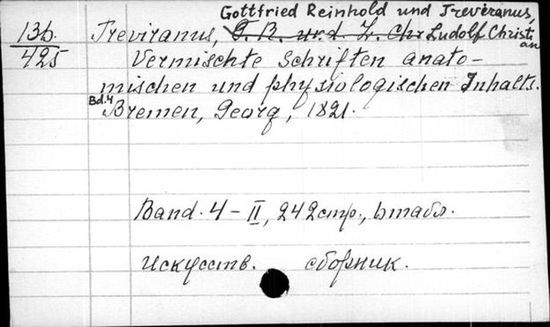 Gottfried Reinhold und Treviranus,
13b. Treviranus, G. R. und L. Chr Ludolf Christian
425 Vermischte Schriften anato-
mischen und physiologischen Inhalts.
Bd.4
Bremen, Georg, 1821.
Band. 4 – II, 242 стр., 6 табл.
Искусств. сборник.